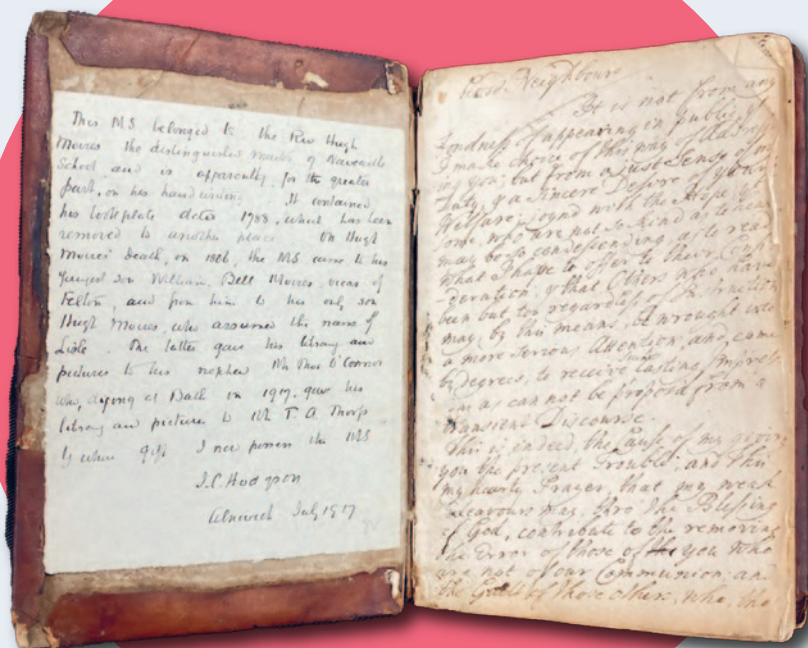 This MS belonged to the Rev Hugh
Moises the distinguished master of Newcastle
School and is apparently, for the greater
part, in his handwriting. It contained
his bookplate dated 1788, which has been
removed to another place. On Hugh
Moises' death, in 1806, the MS came to his
youngest son William Bell Moises, vicar of
Felton, and from him to his only son
Hugh Moises, who assumed the name of
Lisle. The latter gave his library and
pictures to his nephew Mr Thos O'Connor
who, dying at Bath in 1917, gave his
library and pictures to Mr T. A. Thorp
by whose gift I now possess the MS
J.C. Hodgson
Alnwick July 1917
Good Neighbours
It is not from any
Fondness of appearing in publick, yt
I make choice of this way of Address
ing you; but from a just Sense of my
Duty, & a Sincere Desire of your
Welfare, joynd with the Hope that
some, who are not so kind as to
may be so condescending, as to read
what I have to offer to their Consi
-deration, & that Others who have
been but too regardless of Instruction
may, by this means, be wrought into
a more serious Attention, and, come
by degrees, to receive such lasting Impress
ions as can not be hoped from a
transient Discourse.
This is indeed, the Cause of my giving
you the present Trouble; and this
my hearty Prayer, that my weak
Endeavours may, thro' the Blessing
of God, contribute to the removing
the Error of those of you who
are not of our Communion, an
the Guilt of those others, who, tho